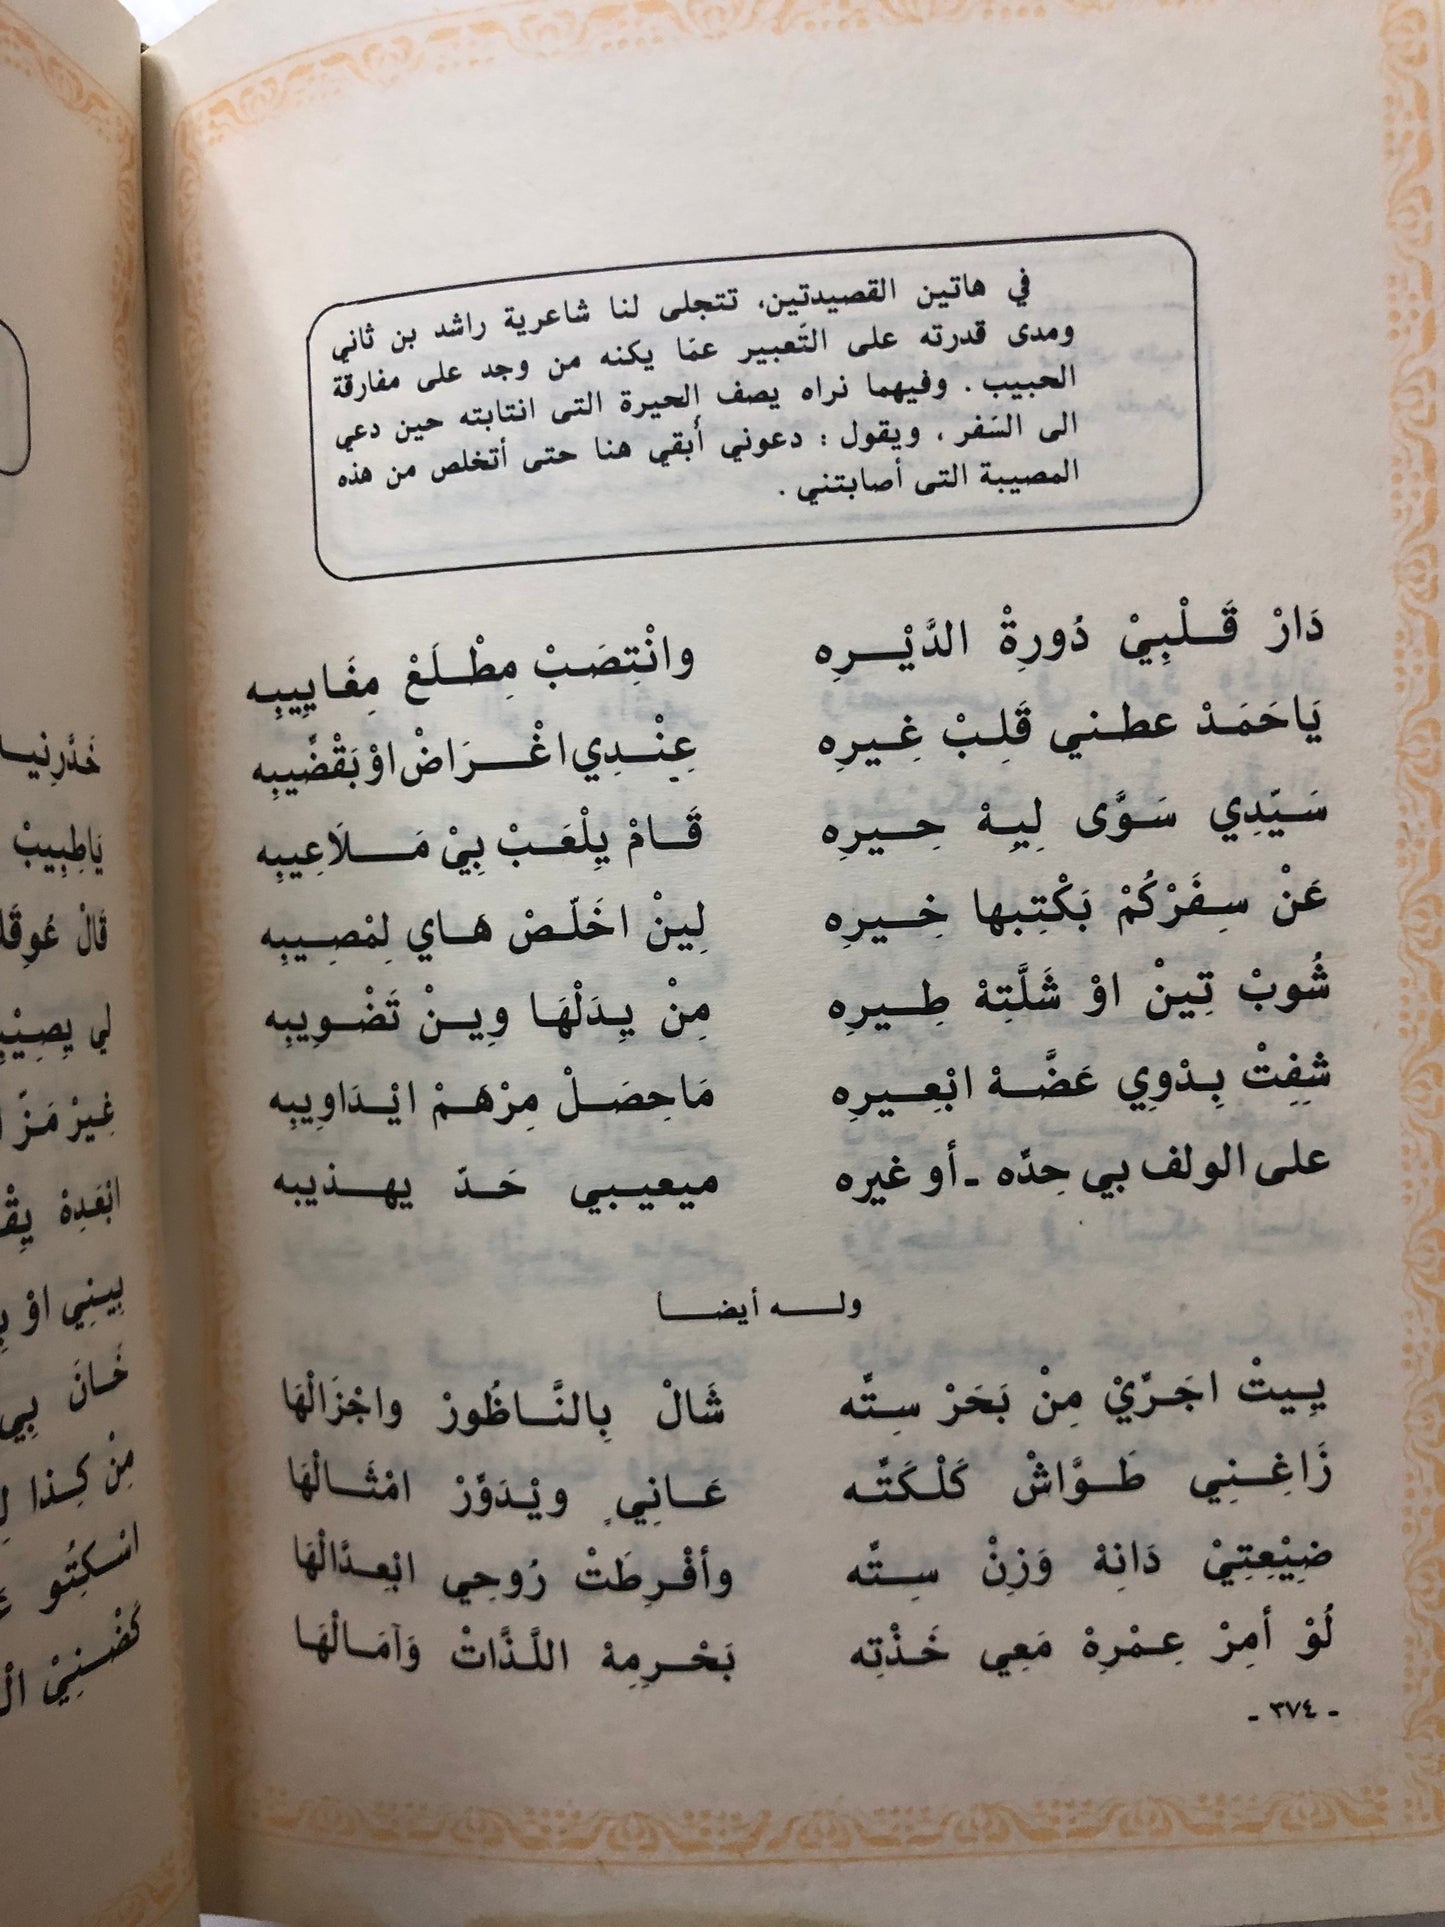 في هاتين القصيدتين، تتجلى لنا شاعرية راشد بن ثاني
ومدى قدرته على التَعبير عمَا يكنه من وجد على مفارقة
الحبيب . وفيهما نراه يصف الحيرة التى انتابته حين دعي
الى السَفر . ويقول : دعوني أبقي هنا حتى أتخلص من هذه
المصيبة التى أصابتني .
دَارْ قَـلْبِيْ دُورِةْ الدَّيْـــرِه وانْتِصَبْ مِطْـلَعْ مِغَـايِيبِه
يَاحَمَـدْ عطـني قَلِبْ غِـيرِه عِنْـدِي اغْـــرَاضْ اوْ بَقْضّيبِه
سَـيّدِي سَـوَّى لِيِـهْ حِـــيرِه قَــامْ يِلْعَــبْ بِيْ مَــــلَاعِيبِه
عَنْ سِـفَرْكُمْ بَكْتِبها خِـــيرِه لِينْ اخَلّـصْ هَـاي لِمْصِـيبِه
شُوبْ تِينْ اوْ شَلَّتِهْ طِـــيرِه مِنْ يِـدَلْهَـا وِيـــنْ تَضْـوِيبِه
شِفِتْ بِـدْوِي عَضَّـهْ ابْعِـيرِه مَاحِصَـلْ مِرْهَـمْ ايْـدَاوِيبِه
على الولف بي حِدّه ـ أو غيره ميعيـبي حَـدّ يهـذيبه
ولـــه أيضــا
يِـيتْ اجَرِّيْ مِنْ بَحَرْ سِـتّه شَالْ بِالنَّـاظُورْ واجْزَالْهَا
زَاغِـنِي طَـوَّاشْ كَلْـكَتَّـه عَـانِي ويْـدَوِّرْ امْثَـالْهَا
ضِيْعِتِيْ دَانِهْ وَزِنْ سِــتّه وأفْـرِطَتْ رُوحِي ابْعِـدَّالْهَا
لُوْ أمِرْ عِـمْرِهْ مَعِي خَـذْتِه بَحْـرِمِهْ اللَّـذَّاتْ وَآمَـالْهَا
ـ ٣٧٤ ـ
خَدَّرِنيا
يَاطِبِيبْ
قَالْ عُوِقَ
لي يِصِيْ
غِيرْ مَزّ
ابْعَدِهْ
بِينِي اوْ
خَـانَ بِي
مِنْ كِـذا
اسْكِتُو